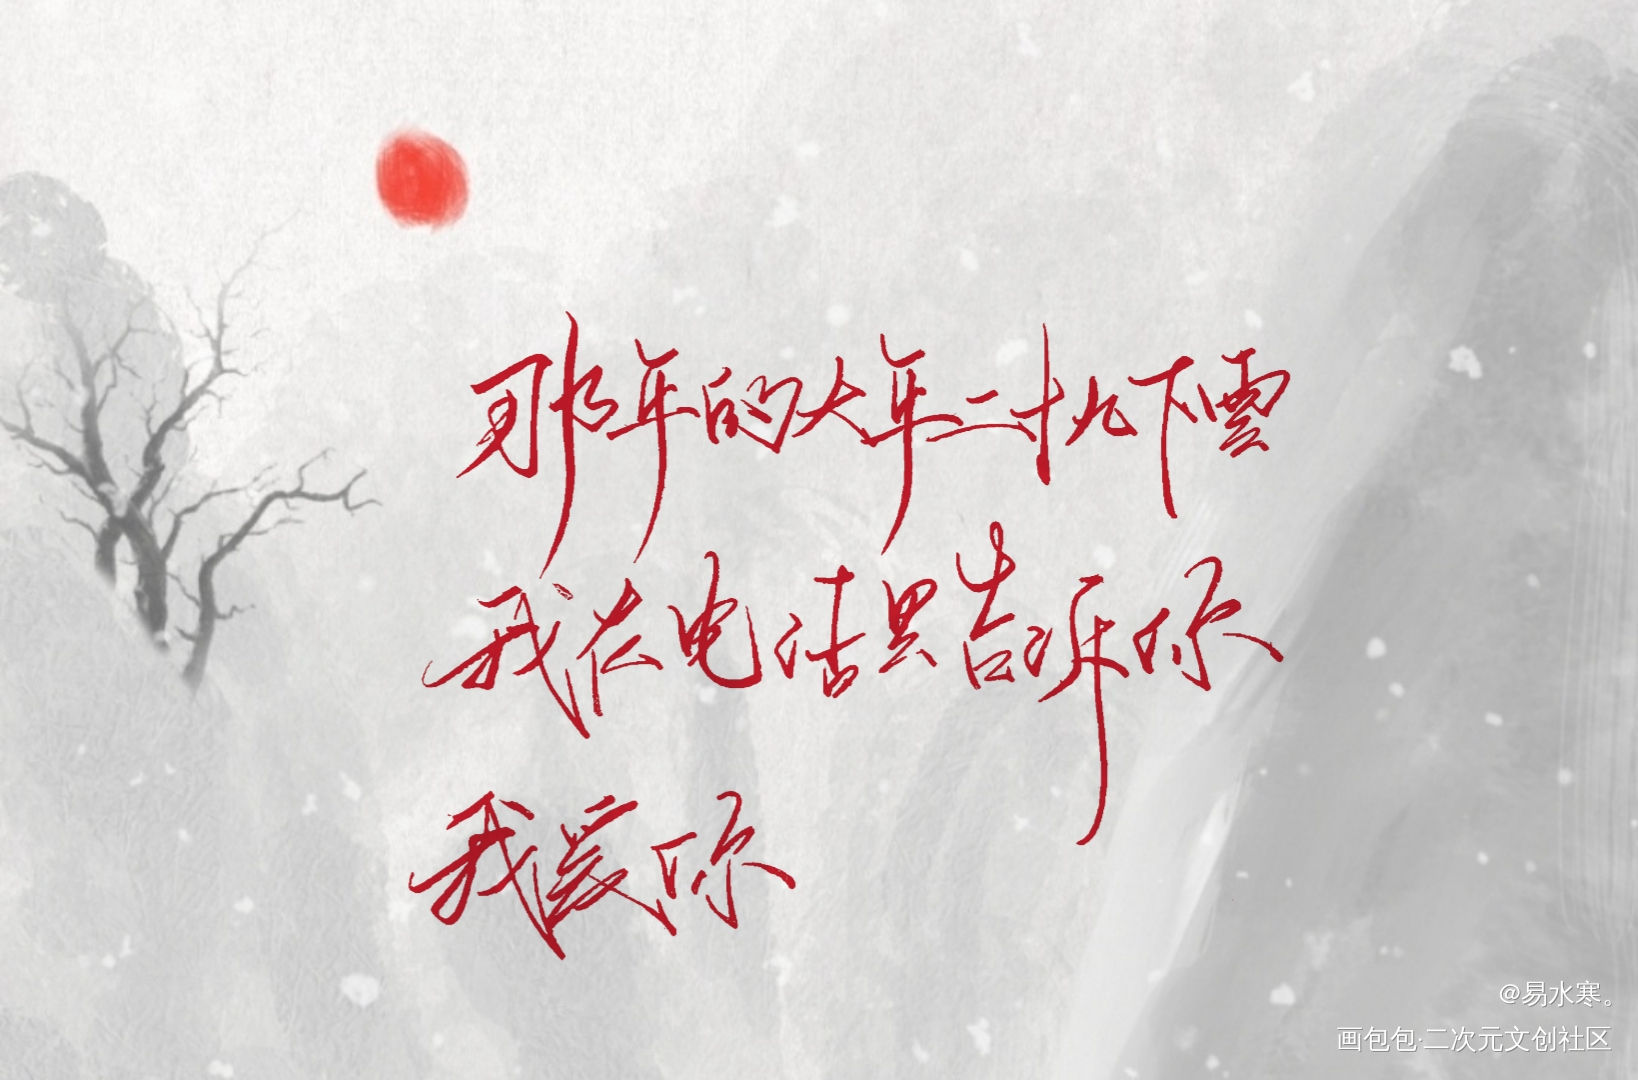 那年的大年二十九下雪
我在电话里告诉你
我爱你
@易水寒。
画包包·二次元文创社区